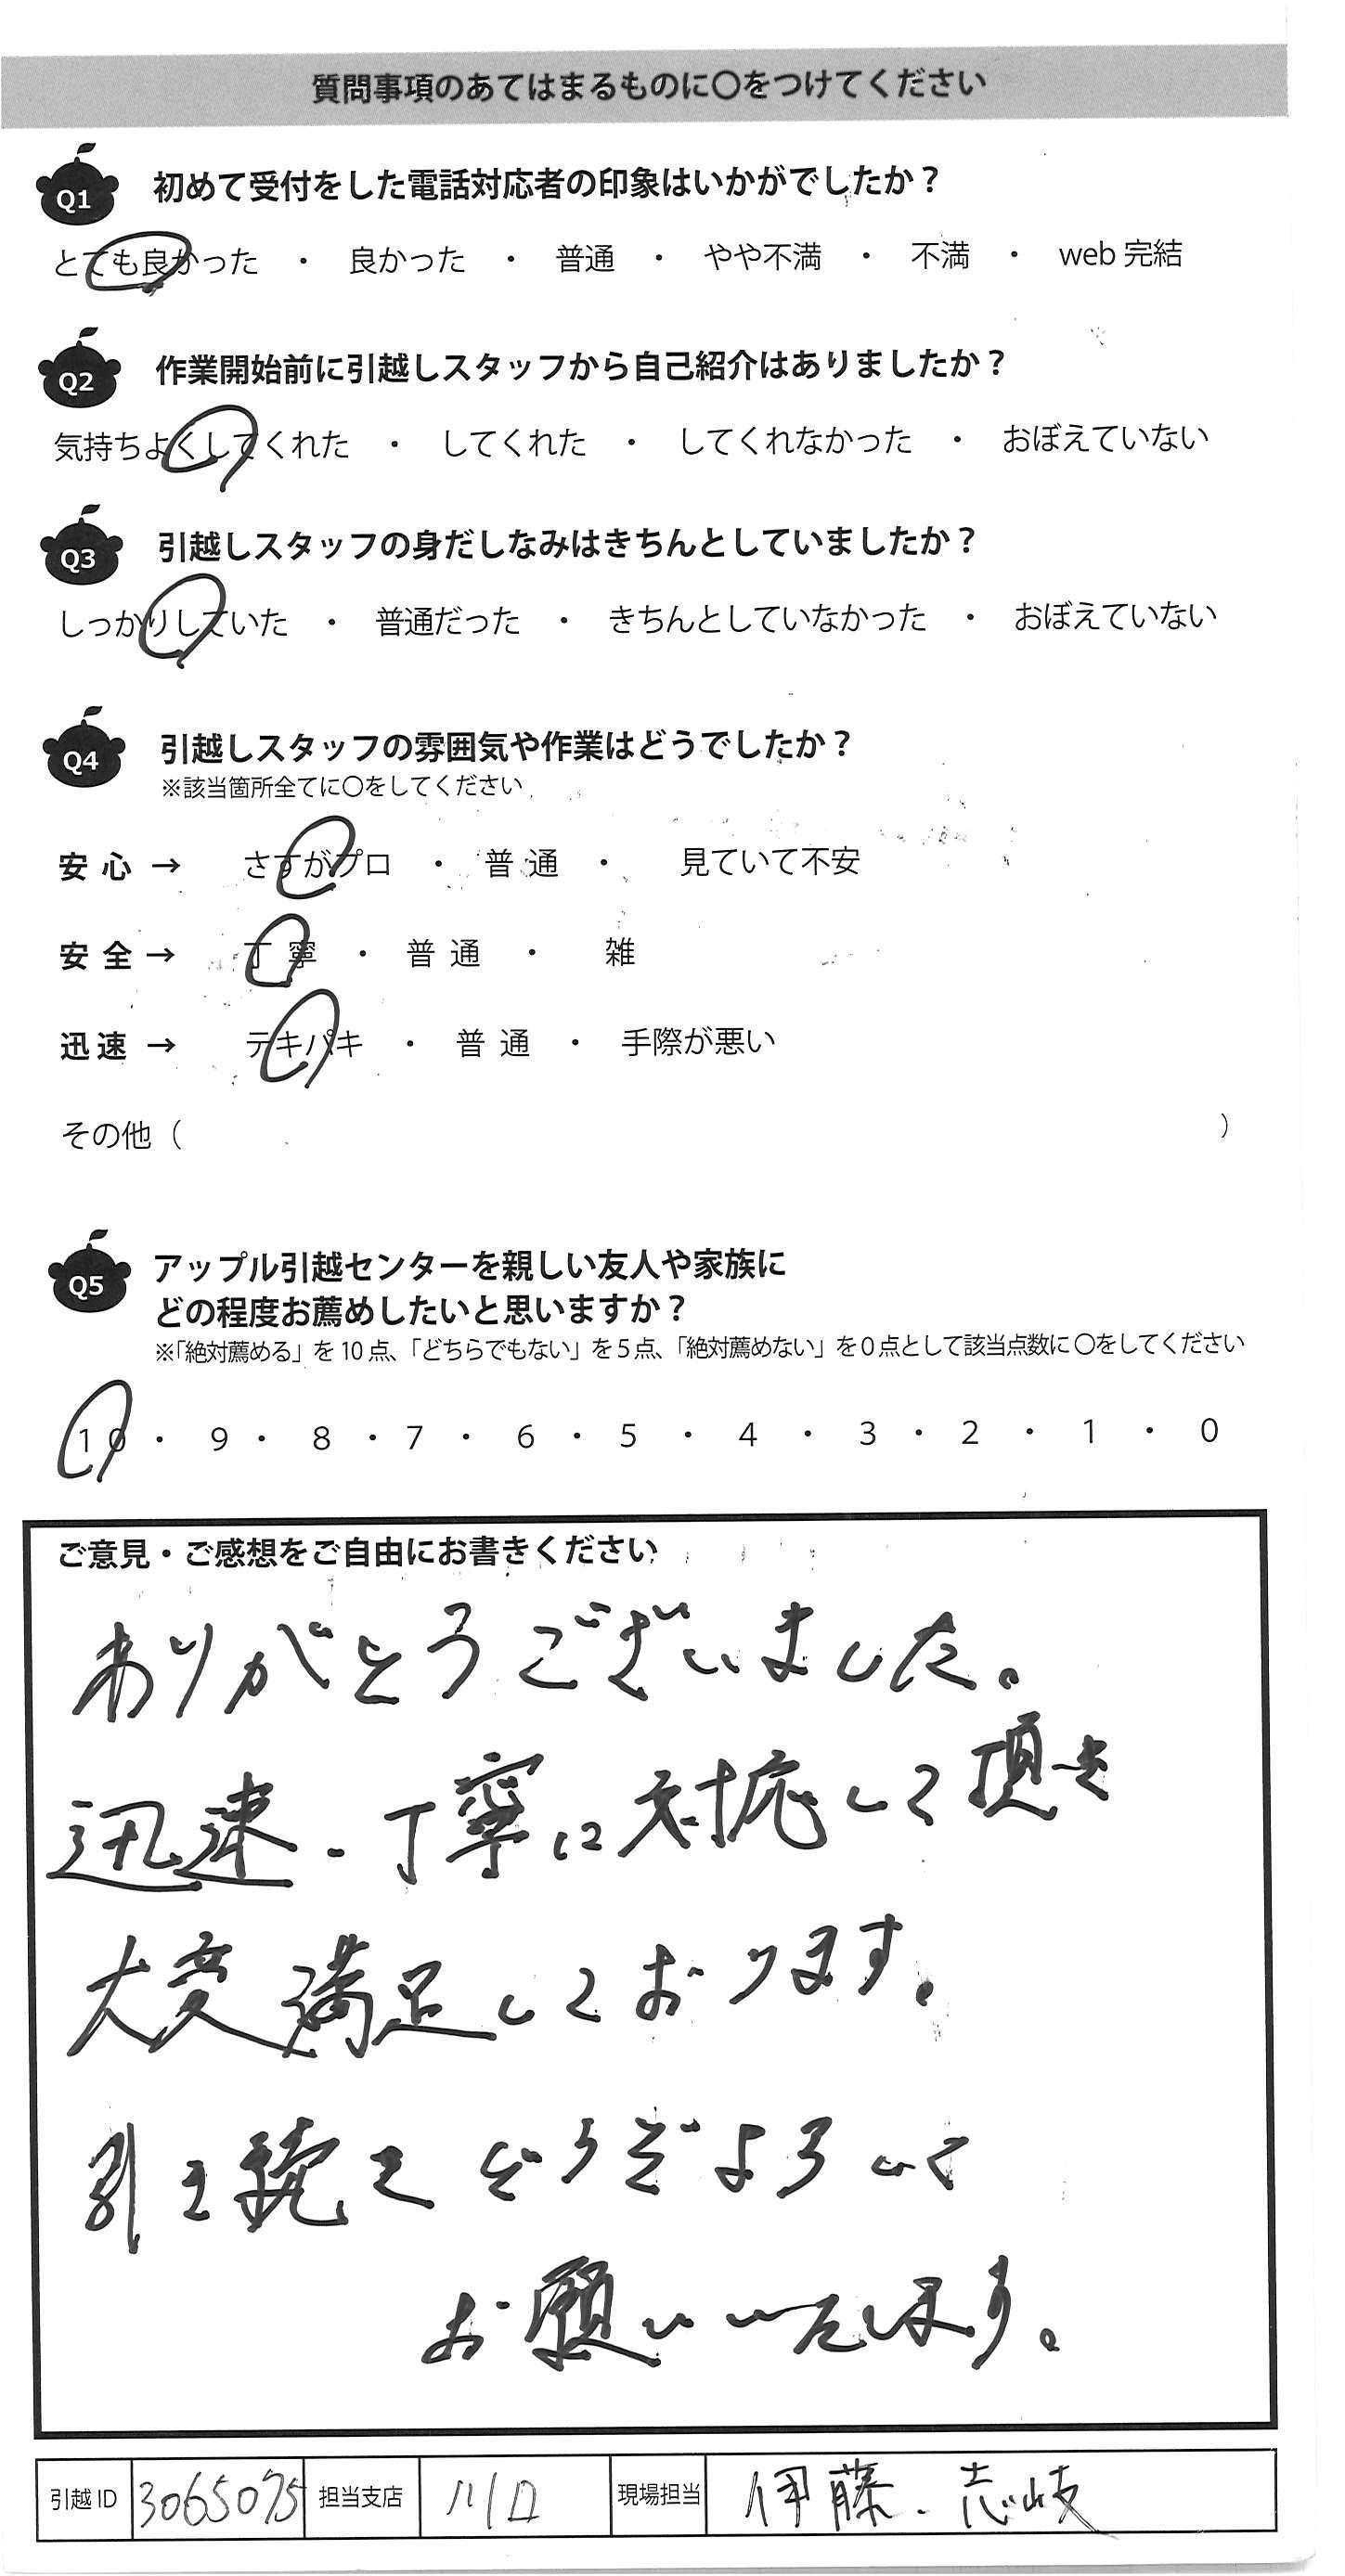 質問事項のあてはまるものに〇をつけてください
Q1 初めて受付をした電話対応者の印象はいかがでしたか？
とても良かった ・ 良かった ・ 普通 ・ やや不満 ・ 不満 ・ web 完結
Q2 作業開始前に引越しスタッフから自己紹介はありましたか？
気持ちよくしてくれた ・ してくれた ・ してくれなかった ・ おぼえていない
Q3 引越しスタッフの身だしなみはきちんとしていましたか？
しっかりしていた ・ 普通だった ・ きちんとしていなかった ・ おぼえていない
Q4 引越しスタッフの雰囲気や作業はどうでしたか？
※該当箇所全てに〇をしてください
安心 → さすがプロ ・ 普通 ・ 見ていて不安
安全 → 丁寧 ・ 普通 ・ 雑
迅速 → テキパキ ・ 普通 ・ 手際が悪い
その他（ ）
Q5 アップル引越センターを親しい友人や家族に
どの程度お薦めしたいと思いますか？
※「絶対薦める」を 10 点、「どちらでもない」を 5 点、「絶対薦めない」を 0 点として該当点数に 〇をしてください
10 ・ 9 ・ 8 ・ 7 ・ 6 ・ 5 ・ 4 ・ 3 ・ 2 ・ 1 ・ 0
ご意見・ご感想をご自由にお書きください
ありがとうございました。
迅速・丁寧に対応して頂き
大変満足しております。
引き続きどうぞよろしく
お願いいたします。
引越 ID 3065075 担当支店 川口 現場担当 伊藤・志岐